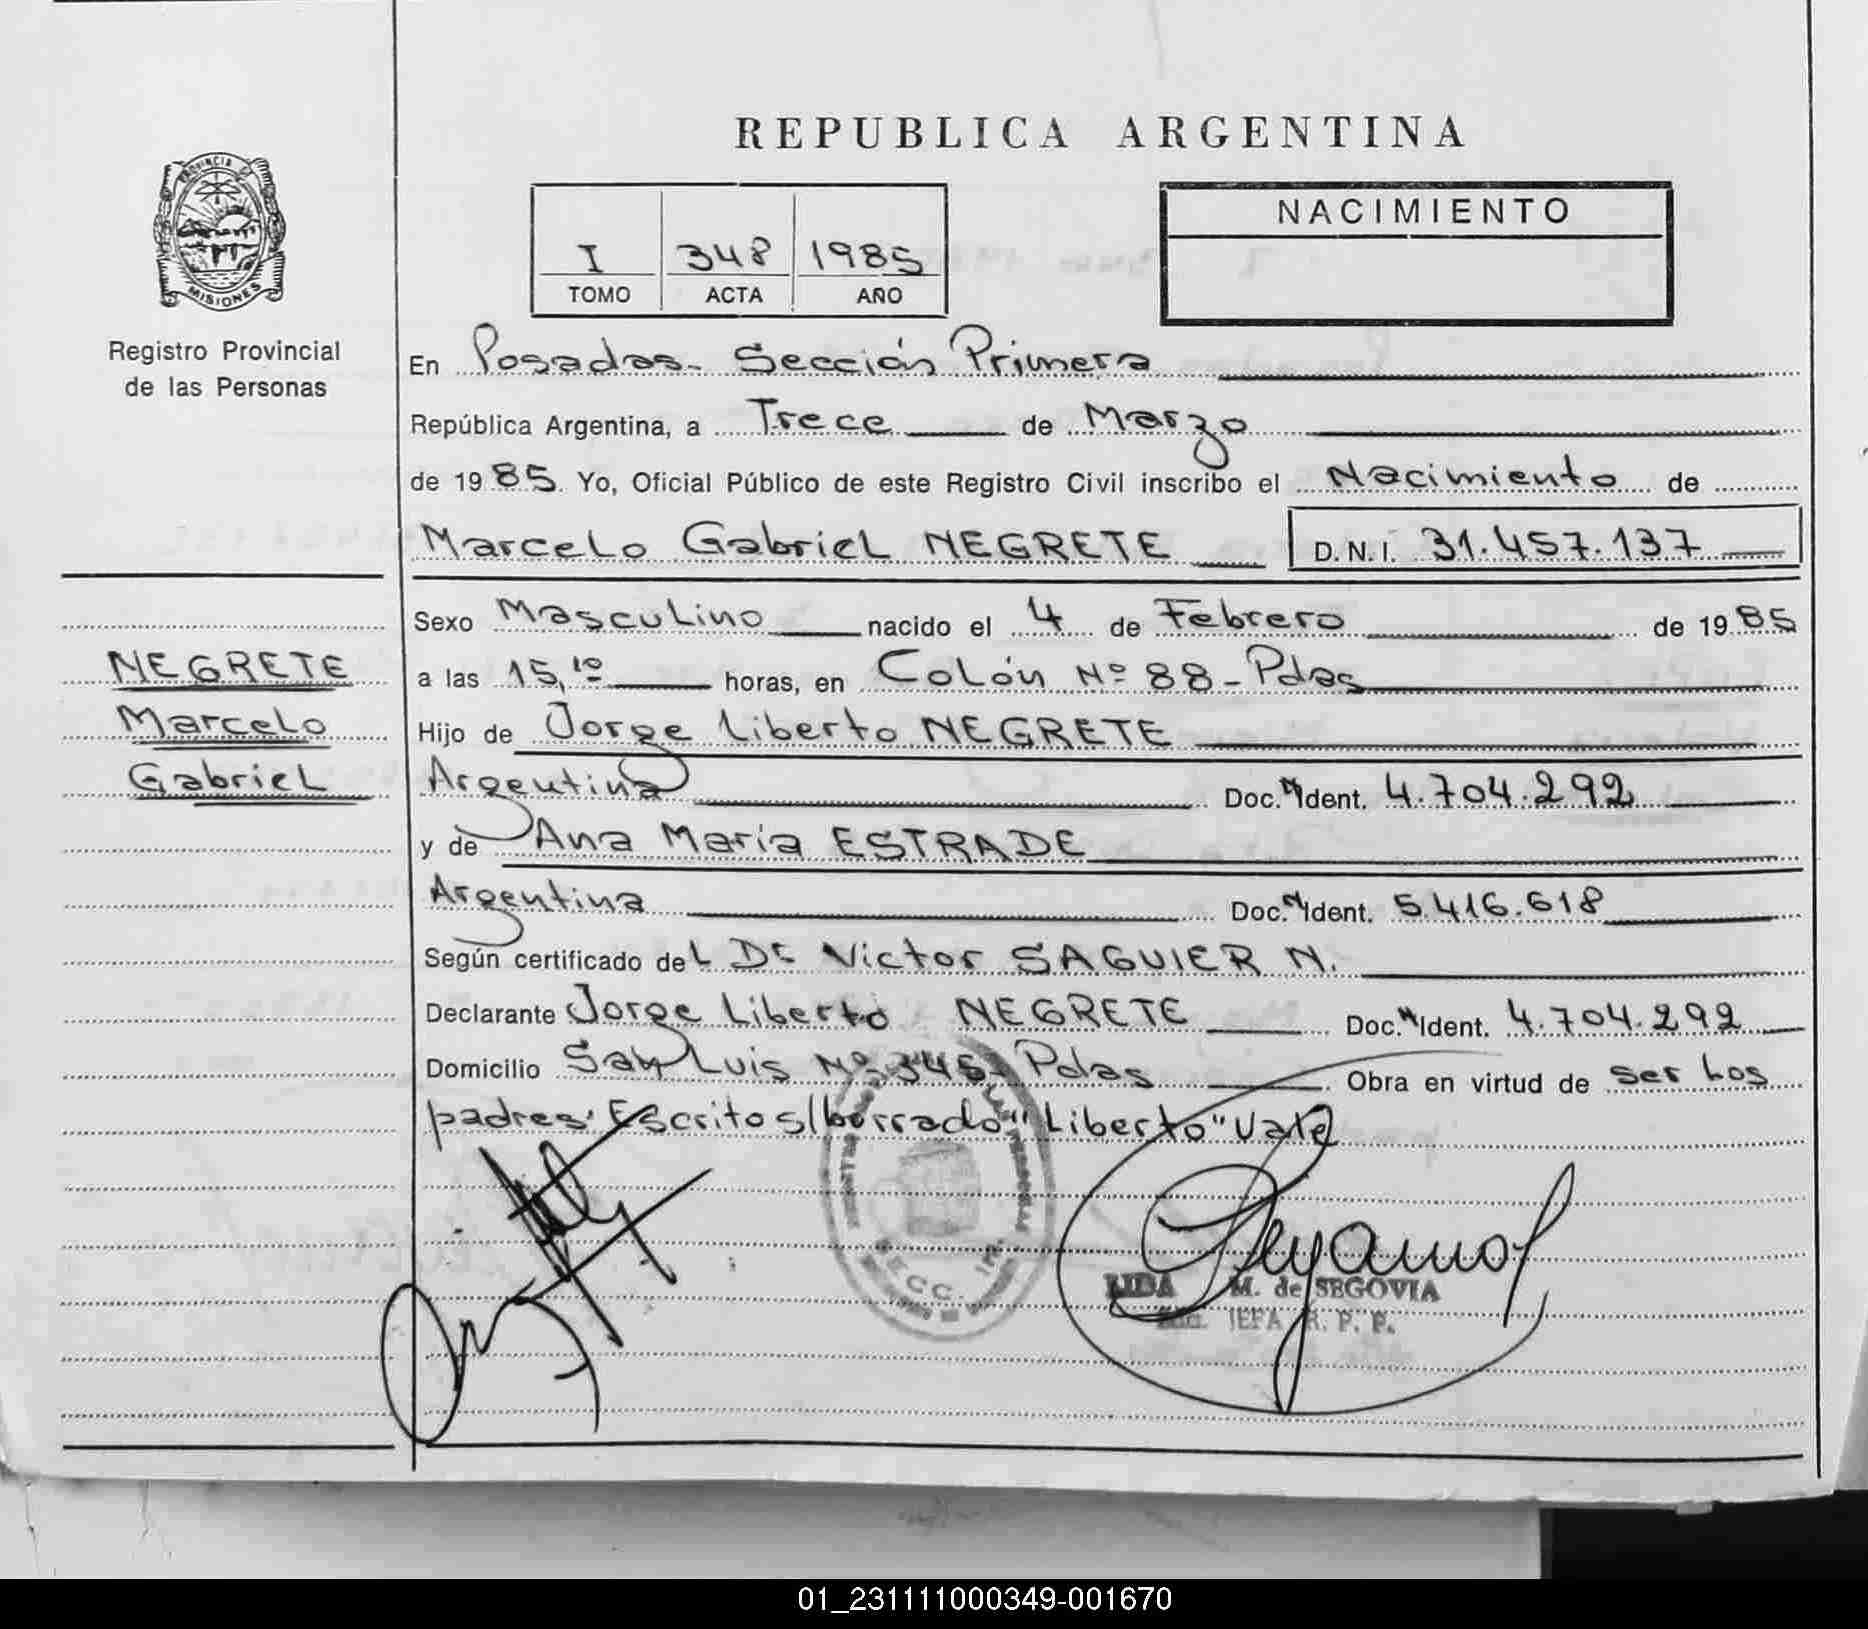 REPUBLICA ARGENTINA
PROVINCIA
MISIONES
Registro Provincial
de las Personas
I 348 1985
TOMO ACTA AÑO
NACIMIENTO
En Posadas- Sección Primera
República Argentina, a Trece de Marzo
de 1985. Yo, Oficial Público de este Registro Civil inscribo el Nacimiento de
Marcelo Gabriel NEGRETE D.N.I. 31.457.137
Sexo Masculino nacido el 4 de Febrero de 1985
a las 15,10 horas, en Colón Nº 88 - Pdas
Hijo de Jorge Liberto NEGRETE
Argentina Doc. Ident. 4.704.292
y de Ana María ESTRADE
Argentina Doc. Ident. 5.416.618
Según certificado del Dr Victor SAGUIER N.
Declarante Jorge Liberto NEGRETE Doc. Ident. 4.704.292
Domicilio San Luis Nº 345- Pdas Obra en virtud de ser los
padres. Escrito s/borrado "Liberto" Vale
NEGRETE
Marcelo
Gabriel
SECC. 1ra.
LIDA M. de SEGOVIA
JEFA R. P. P.
01_231111000349-001670